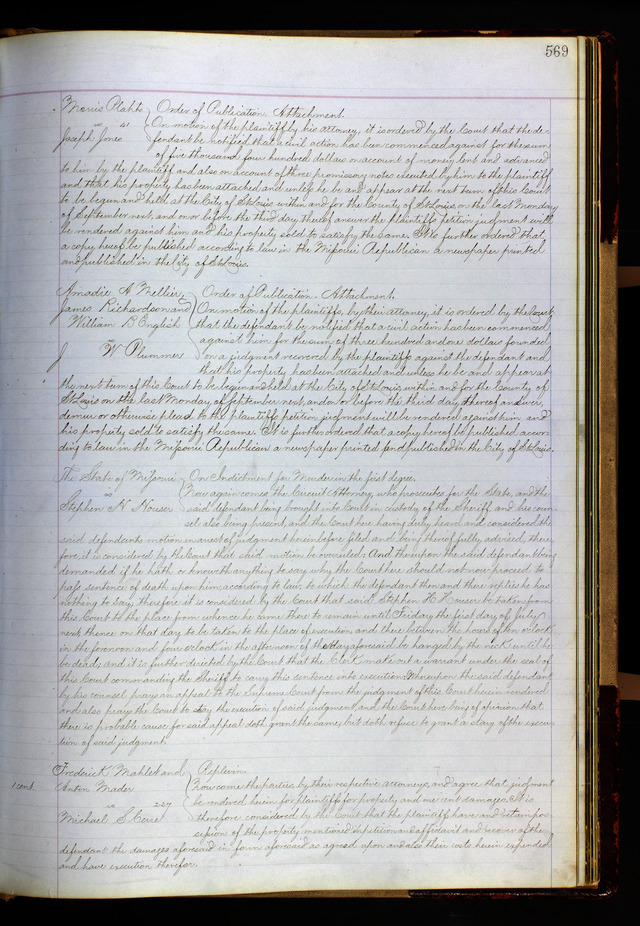 569
Morris Plahto } Order of Publication. Attachment.
vs 41 On motion of the plaintiff by his attorney, it is ordered by the Court that the de-
Joseph Jones fendant be notified that a civil action has been commenced against for the sum
of five thousand four hundred dollars on account of money lent and advanced
to him by the plaintiff and also on account of three promissory notes executed by him to the plaintiff
and that his property has been attached and unless he be and appear at the next term of this Court
to be begun and held at the City of St Louis within and for the County of St Louis on the last Monday
of September next and on or before the third day thereof answer the plaintiffs petition judgment will
be rendered against him and his property sold to satisfy the same. It is further ordered that
a copy hereof be published according to law in the Missouri Republican a newspaper printed
and published in the City of St Louis.
Amadie A Mellier, Order of Publication. Attachment.
James Richardson and On motion of the plaintiffs, by their attorney, it is ordered by the Court
William B English that the defendant be notified that a civil action has been commenced
against him for the sum of three hundred and one dollars founded
vs on a judgment recovered by the plaintiffs against the defendant and
J W Plummer that his property has been attached and unless he be and appear at
the next term of this Court to be begun and held at the City of St Louis within and for the County of
St Louis on the last Monday of September next, and on or before the third day thereof answer,
demur or otherwise plead to the plaintiffs petition judgment will be rendered against him and
his property sold to satisfy the same. It is further ordered that a copy hereof be published accor-
ding to law in the Missouri Republican a newspaper printed and published in the City of St Louis.
The State of Missouri On Indictment for Murder in the first degree.
vs Now again comes the Circuit Attorney, who prosecutes for the State, and the
Stephen H Houser said defendant being brought into Court in custody of the Sheriff and his coun-
sel also being present, and the Court here having duly heard and considered the
said defendants motion in arrest of judgment hereinbefore filed and being thereof fully advised, there-
fore, it is considered by the Court that said motion be overruled. And thereupon the said defendant being
demanded if he hath or know the anything to say why the Court here should not now proceed to
pass sentence of death upon him according to law, to which the defendant then and there replies he has
nothing to say, therefore it is considered by the Court that said Stephen H Houser be taken from
this Court to the place from whence he came there to remain until Friday the first day of July
next, thence on that day to be taken to the place of execution and there between the hours of ten oclock
in the forenoon and four oclock in the afternoon of the day aforesaid be hanged by the neck until he
be dead; and it is further directed by the Court that the Clerk make out a warrant under the seal of
this Court commanding the Sheriff to carry this sentence into execution. Whereupon the said defendant
by his counsel prays an appeal to the Supreme Court from the judgment of this Court herein rendered
and also prays the Court to stay the execution of said judgment, and the Court here being of opinion that
there is probable cause for said appeal doth grant the same, but doth refuse to grant a stay of the execu-
tion of said judgment.
Frederick Mahle and Replevin.
1 cent. Anton Mader Now come the parties by their respective attorneys, and agree that judgment
vs 227 be rendered herein for plaintiffs for property and one cent damages. It is
Michael S Cerre therefore considered by the Court that the plaintiff have and retain pos-
session of the property mentioned in petition and affidavit and recover of the
defendant the damages aforesaid in form aforesaid as agreed upon and also their costs herein expended
and have execution therefor.